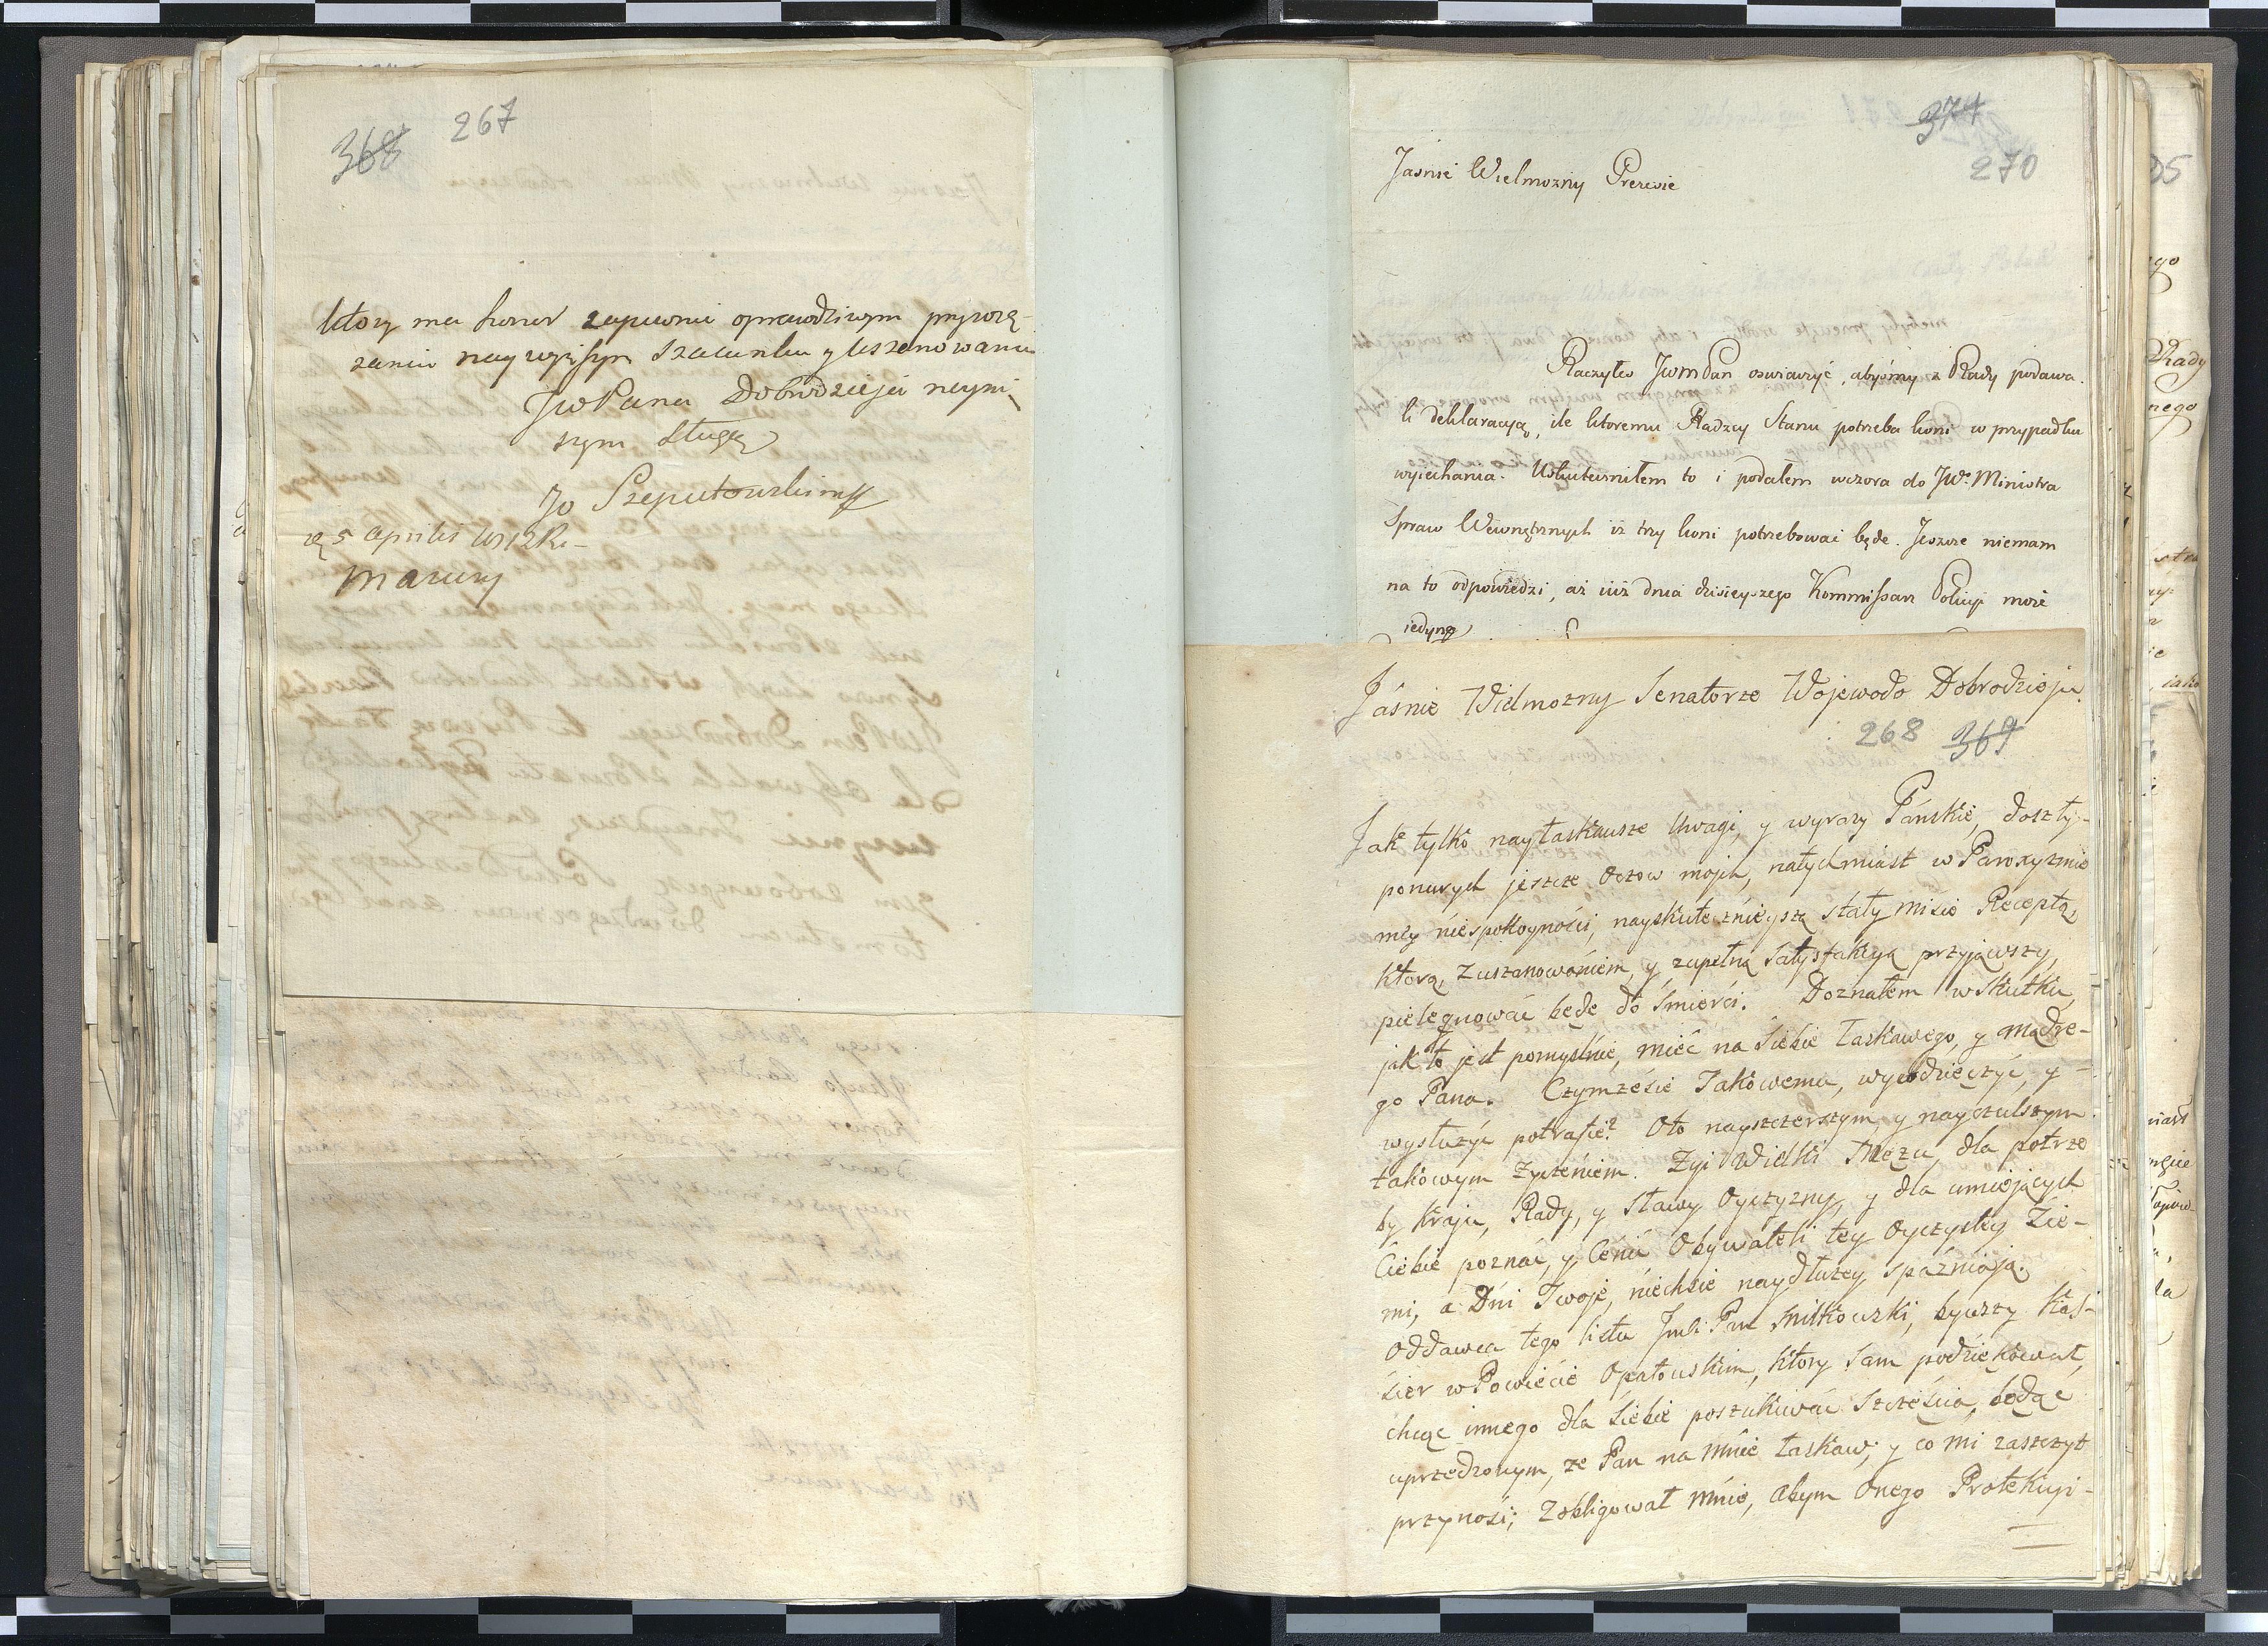 267
368
ktory ma honor zapewnić o prawdziwym przywią-
zaniu naywyższym Szacunku y Uszanowaniu
JWPana Dobrodzieja nayni-
szym Sługą
Jo Szeputowskimp
5 Aprilis
Mazury
374
270
Jasnie Wielmozny Prezesie
Raczyłeś JWmPan oswiadczyć, abysmy z Rady podawa.
li deklaracyą, ile ktoremu Radzcy Stanu potrzeba koni w przypadku
wyiechania. Uskuteczniłem to i podałem wczora do JWo Ministra
Spraw Wewnętrznych iż trzy koni potrzebować będe. Jeszcze niemam
na to odpowiedzi, aż iuż dnia dzisieyszego Kommissarz Policyi może
iedyną
Jásnie Wielmozny Senatorze Wojewodo Dobrodzieju
268 369
Jak tylko nayłaskawsze Uwagi, y wyrazy Pánskie, doszły-
ponurych jeszcze Oczow mojch, natychmiast w Paroxyzmie
mey niespokoyności, nayskutecznieyszą stały misie Receptą,
ktorą, Zuszanowaniem, y zupełną Satysfakcyą przyjąwszy,
pielęgnować będę do Smierci. Doznałem w Skutku,
jak to jest pomyslnie, mieć na Siebie Łaskawego, y mądre-
go Pana. Czymżesie Takowemu, wywdzięczyć, y-
wysłużyć potrafie? Oto nayszczerszym y nayczulszym
takowym życzeniem. Zyi Wielki Mężu, dla potrze
by Kraju, Rady, y Sławy Oyczyzny, y dla umiejących
Ciebie poznać, y Cenić Obywateli tey Oyczystey Zie-
mi, a Dni Twoje, niechsie naydłużey spaźniają.
Oddawca tego listu Pan Miłkowski, bywszy Kas-
sier w Powiecie Opatowskim, ktory sam podziękował,
chcąc innego dla Siebie poszukiwać Szczęścia, będąc
uprzedzonym, że Pan na mnie łaskaw, y co mi zaszczyt
przynosi; Zobligował mnie, abym Onego Protekcyi-